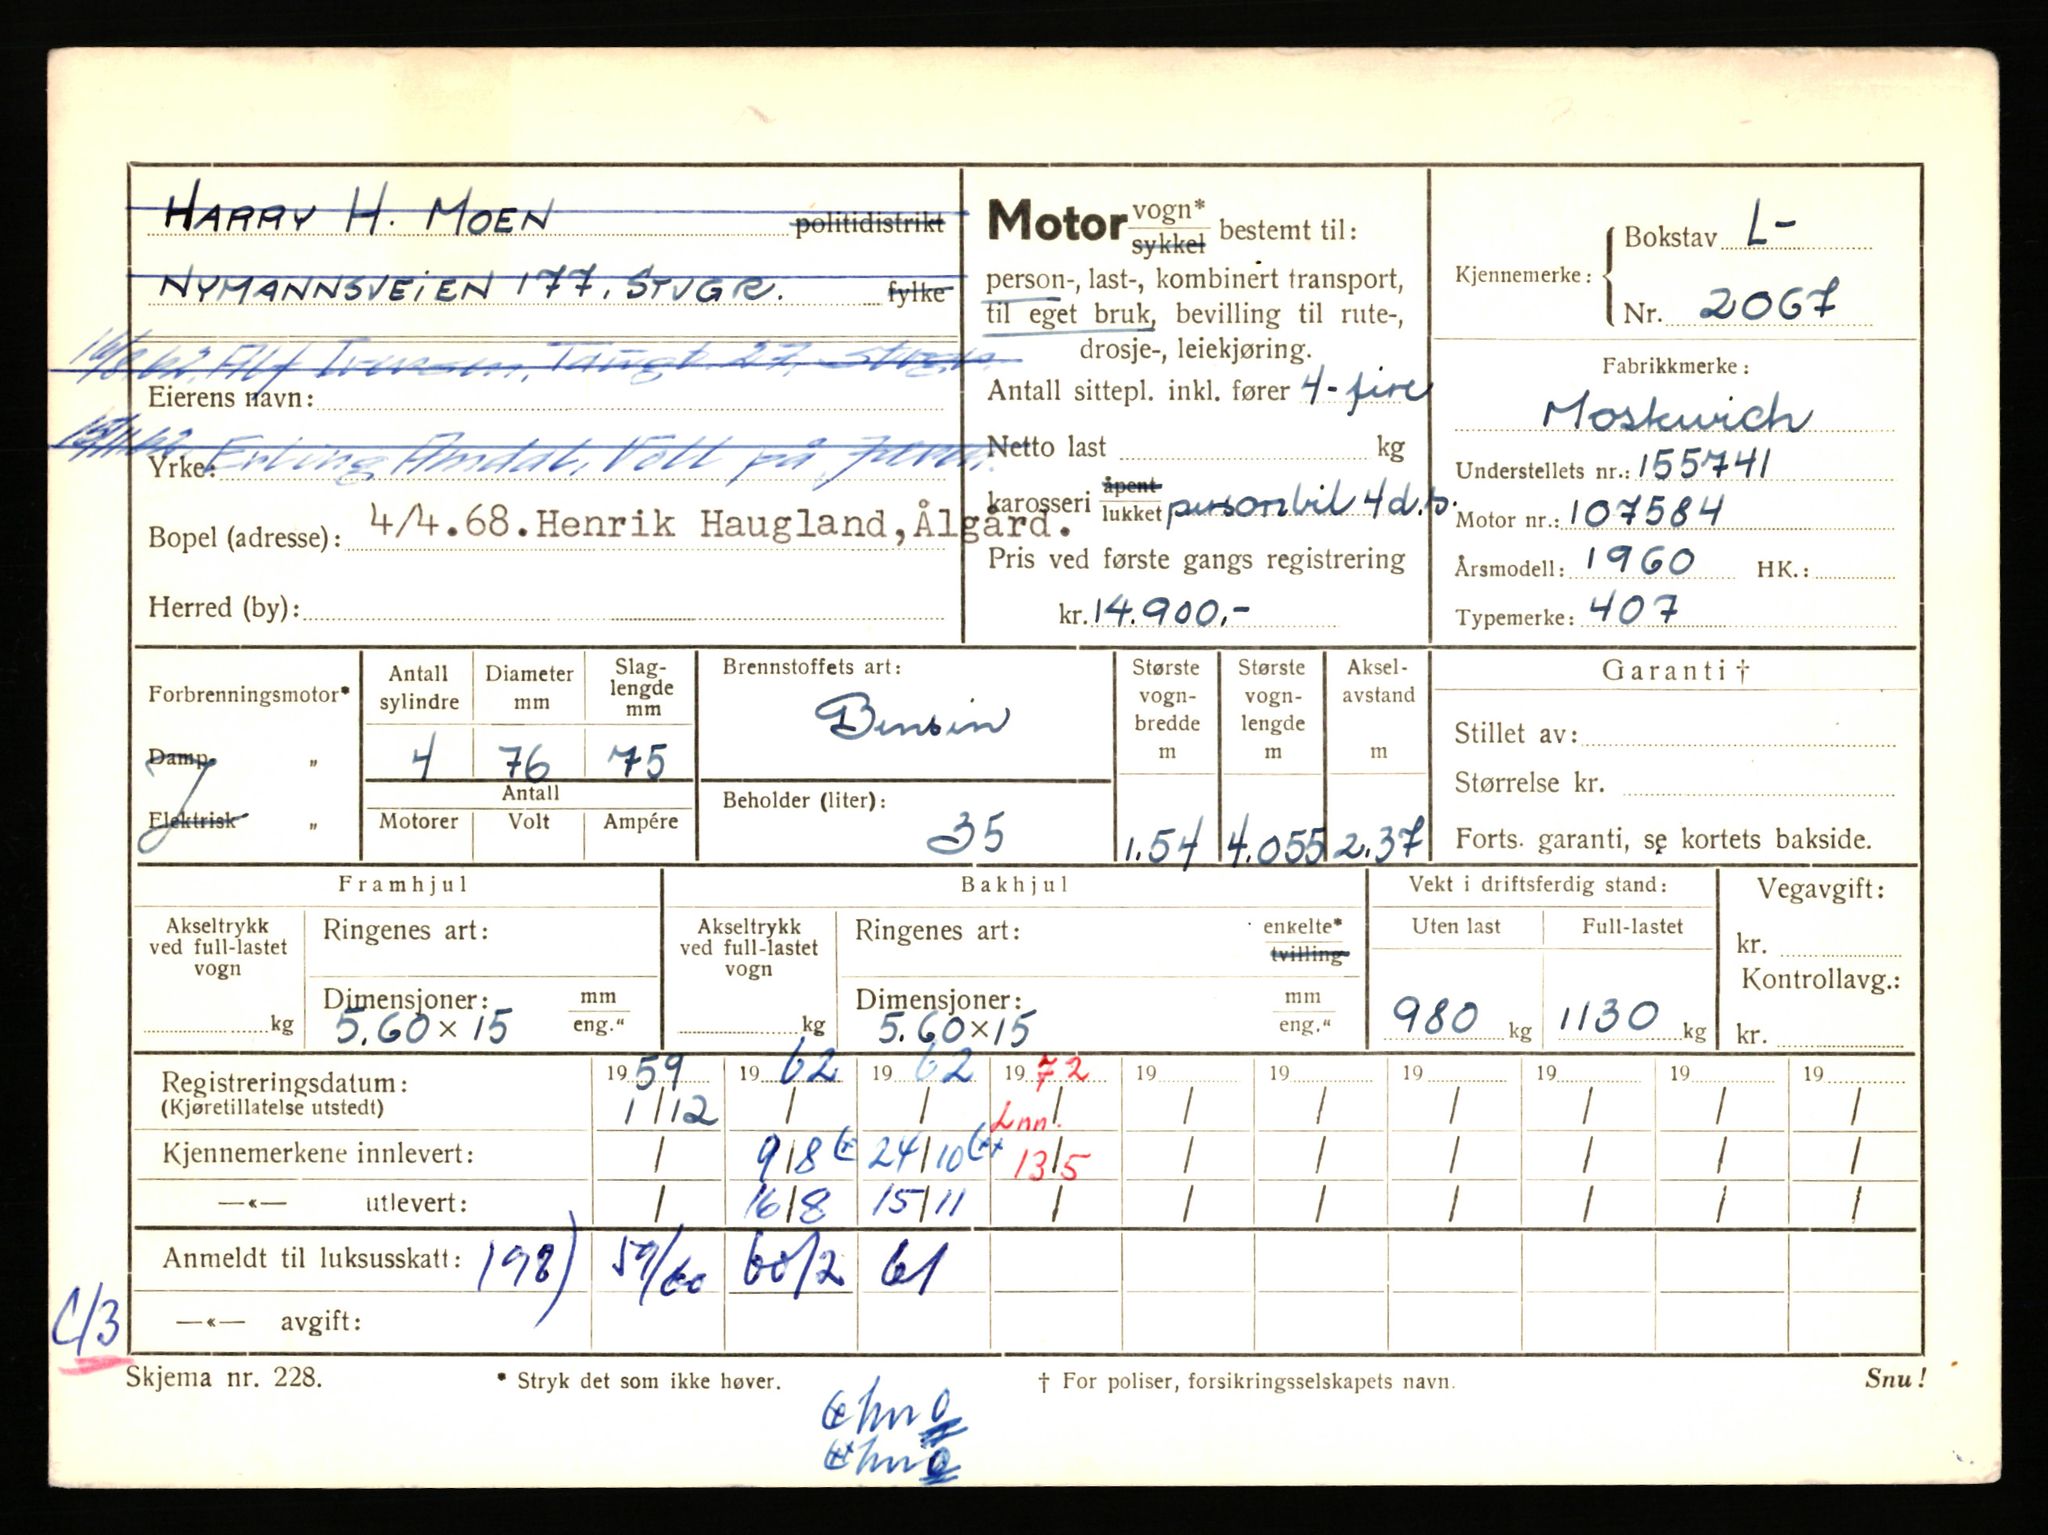 HARRY H. MOEN politidistrikt
NYMANNSVEIEN 177. STVGR. fylke
Alf Iversen, 27, Stvgr.
Eierens navn:
Erling Amdal, Voll på Jæren.
Yrke:
4/4.68. Henrik Haugland, Ålgård.
Bopel (adresse):
Herred (by):
Motor vogn* / sykkel bestemt til:
person-, last-, kombinert transport,
til eget bruk, bevilling til rute-,
drosje-, leiekjøring.
Antall sittepl. inkl. fører 4-fire
Netto last kg
karosseri åpent / lukket personbil 4 d.
Pris ved første gangs registrering
kr. 14.900,-
Kjennemerke: Bokstav L-
Nr. 2067
Fabrikkmerke:
Moskwich
Understellets nr.: 155741
Motor nr.: 107584
Årsmodell: 1960 HK.:
Typemerke: 407
Forbrenningsmotor*
Damp „
Elektrisk „
Antall sylindre Diameter mm Slag-lengde mm
4 76 75
Antall
Motorer Volt Ampére
Brennstoffets art:
Bensin
Beholder (liter):
35
Største vogn-bredde m
1.54
Største vogn-lengde m
4.055
Aksel-avstand m
2.37
Garanti †
Stillet av:
Størrelse kr.
Forts. garanti, se kortets bakside.
Framhjul
Akseltrykk ved full-lastet vogn
kg
Ringenes art:
Dimensjoner: mm / eng."
5.60 x 15
Bakhjul
Akseltrykk ved full-lastet vogn
kg
Ringenes art: enkelte* / tvilling
Dimensjoner: mm / eng."
5.60 x 15
Vekt i driftsferdig stand:
Uten last Full-lastet
980 kg 1130 kg
Vegavgift:
kr.
Kontrollavg.:
kr.
Registreringsdatum: 1959 1962 1962 1972 19 19 19 19 19 19
(Kjøretillatelse utstedt) 1/12 / / / / / / / / /
Lnn.
Kjennemerkene innlevert: / 9/8 24/10 13/5 / / / / / /
—«— utlevert: / 16/8 15/11 / / / / / / /
Anmeldt til luksusskatt: 198) 59/60 60/2 61
—«— avgift:
C/3
Skjema nr. 228. * Stryk det som ikke høver. † For poliser, forsikringsselskapets navn. Snu!